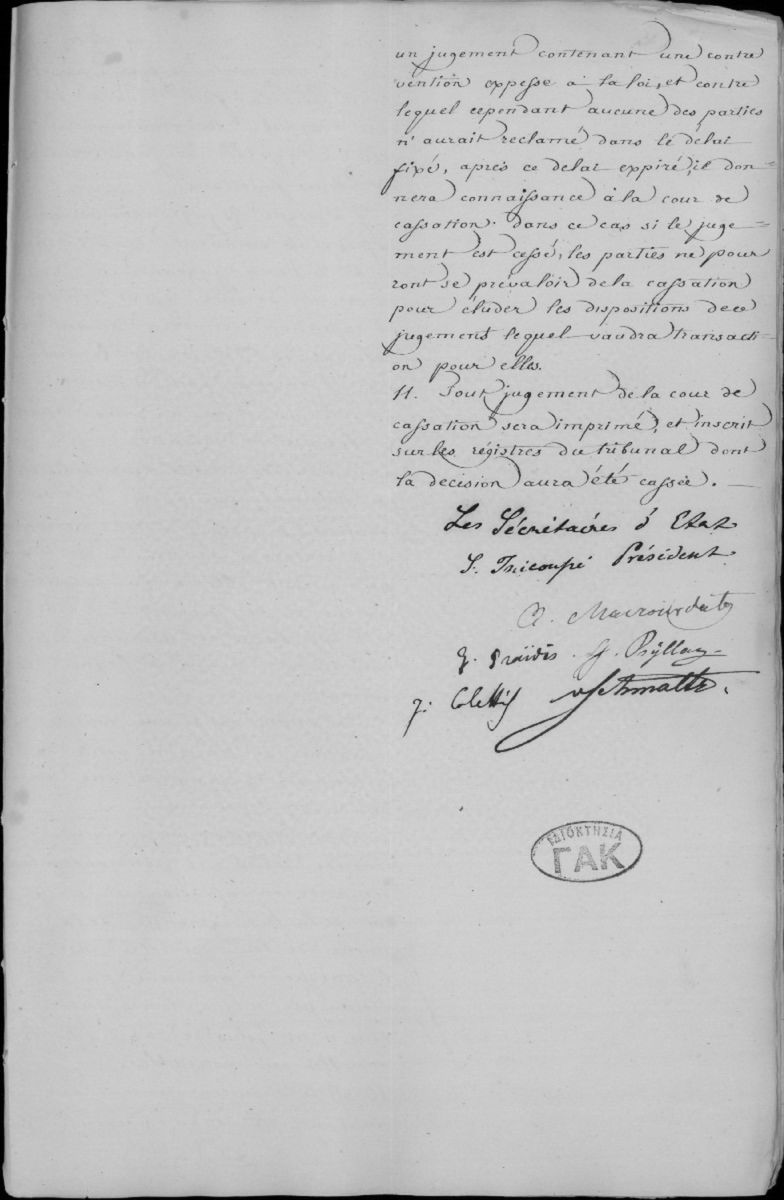 un jugement contenant une contre
vention expesse à la loi, et contre
lequel cependant aucune des parties
n'aurait reclamé dans le délai
fixé, après ce delai expiré, il don=
nera connaissance à la cour de
cassation. dans ce cas si le juge=
ment est cessé, les parties ne pour
ront se prévaloir de la cassation
pour éluder les dispositions de ce
jugement lequel vaudra transacti=
on pour elles.
11. Tout jugement de la cour de
cassation sera imprimé, et inscrit
sur les régistres du tribunal dont
la decision aura été cassée.
Les Sécrétaires d'Etat
S. Tricoupi Président
A. Maurocordato
G. Praïdis G. Psyllas
J: Colettis Schmaltz.
ΙΔΙΟΚΤΗΣΙΑ
ΓΑΚ